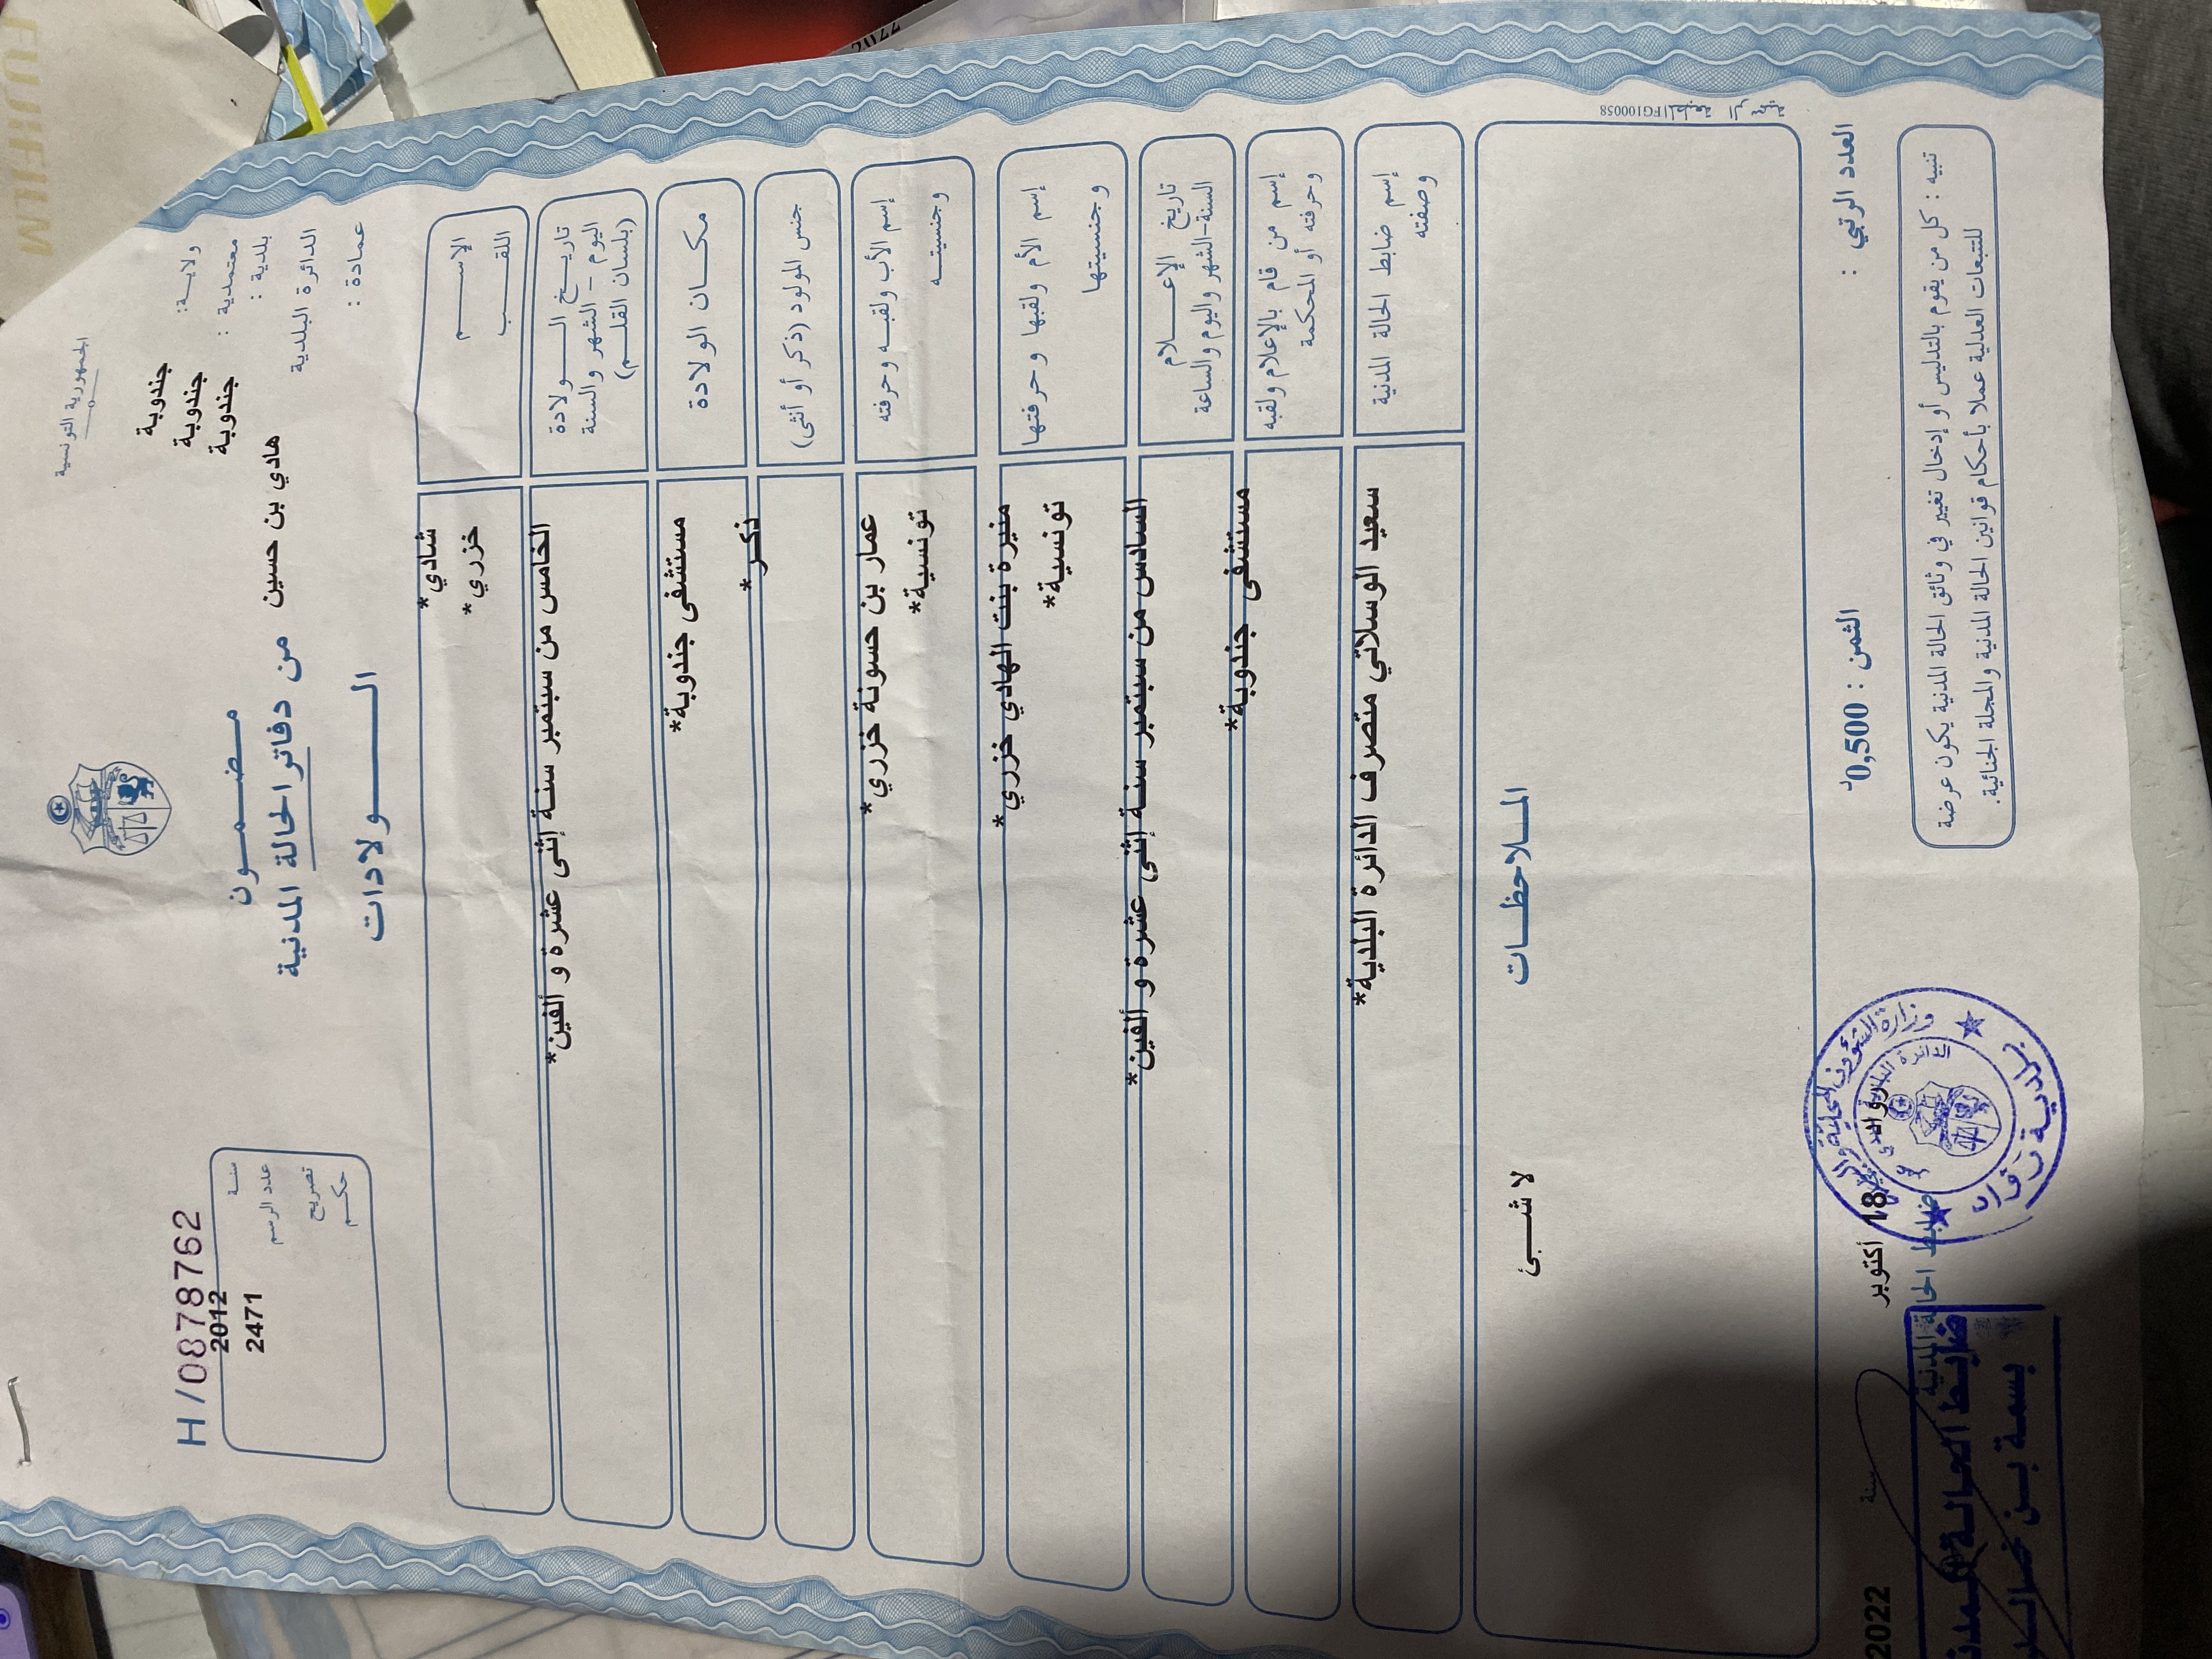 الجمهورية التونسية
ولاية: جندوبة
معتمدية : جندوبة
بلدية : جندوبة
الدائرة البلدية هادي بن حسين
عمادة :
H/0878762
سنة 2012
عدد الرسم 2471
تصريح
حكم
مضمون
من دفاتر الحالة المدنية
الولادات
الإسم شادي*
اللقب خزري*
تاريخ الولادة
اليوم - الشهر والسنة
(بلسان القلم)
الخامس من سبتمبر سنة إثنتى عشرة و ألفين*
مكان الولادة مستشفى جندوبة*
جنس المولود (ذكر أو أنثى) ذكر*
إسم الأب ولقبه وحرفته عمار بن حسونة خزري*
وجنسيته تونسية*
إسم الأم ولقبها وحرفتها منيرة بنت الهادي خزري*
وجنسيتها تونسية*
تاريخ الإعلام
السنة-الشهر واليوم والساعة
السادس من سبتمبر سنة إثنتى عشرة و ألفين*
إسم من قام بالإعلام ولقبه
وحرفته أو المحكمة
مستشفى جندوبة*
إسم ضابط الحالة المدنية
وصفته
سعيد الوسلاتي متصرف الدائرة البلدية*
الملاحظات
لا شيئ
المطبعة الرسمية FG100058
العدد الرتبي :
الثمن : 0,500د
18 أكتوبر سنة 2022
ضابط الحالة المدنية
تنبيه : كل من يقوم بالتدليس أو إدخال تغيير في وثائق الحالة المدنية يكون عرضة
للتتبعات العدلية عملا بأحكام قوانين الحالة المدنية والمجلة الجنائية.
وزارة الشؤون المحلية
بلدية
ضابط الحالة المدنية
بسمة بن
FUJIFILM